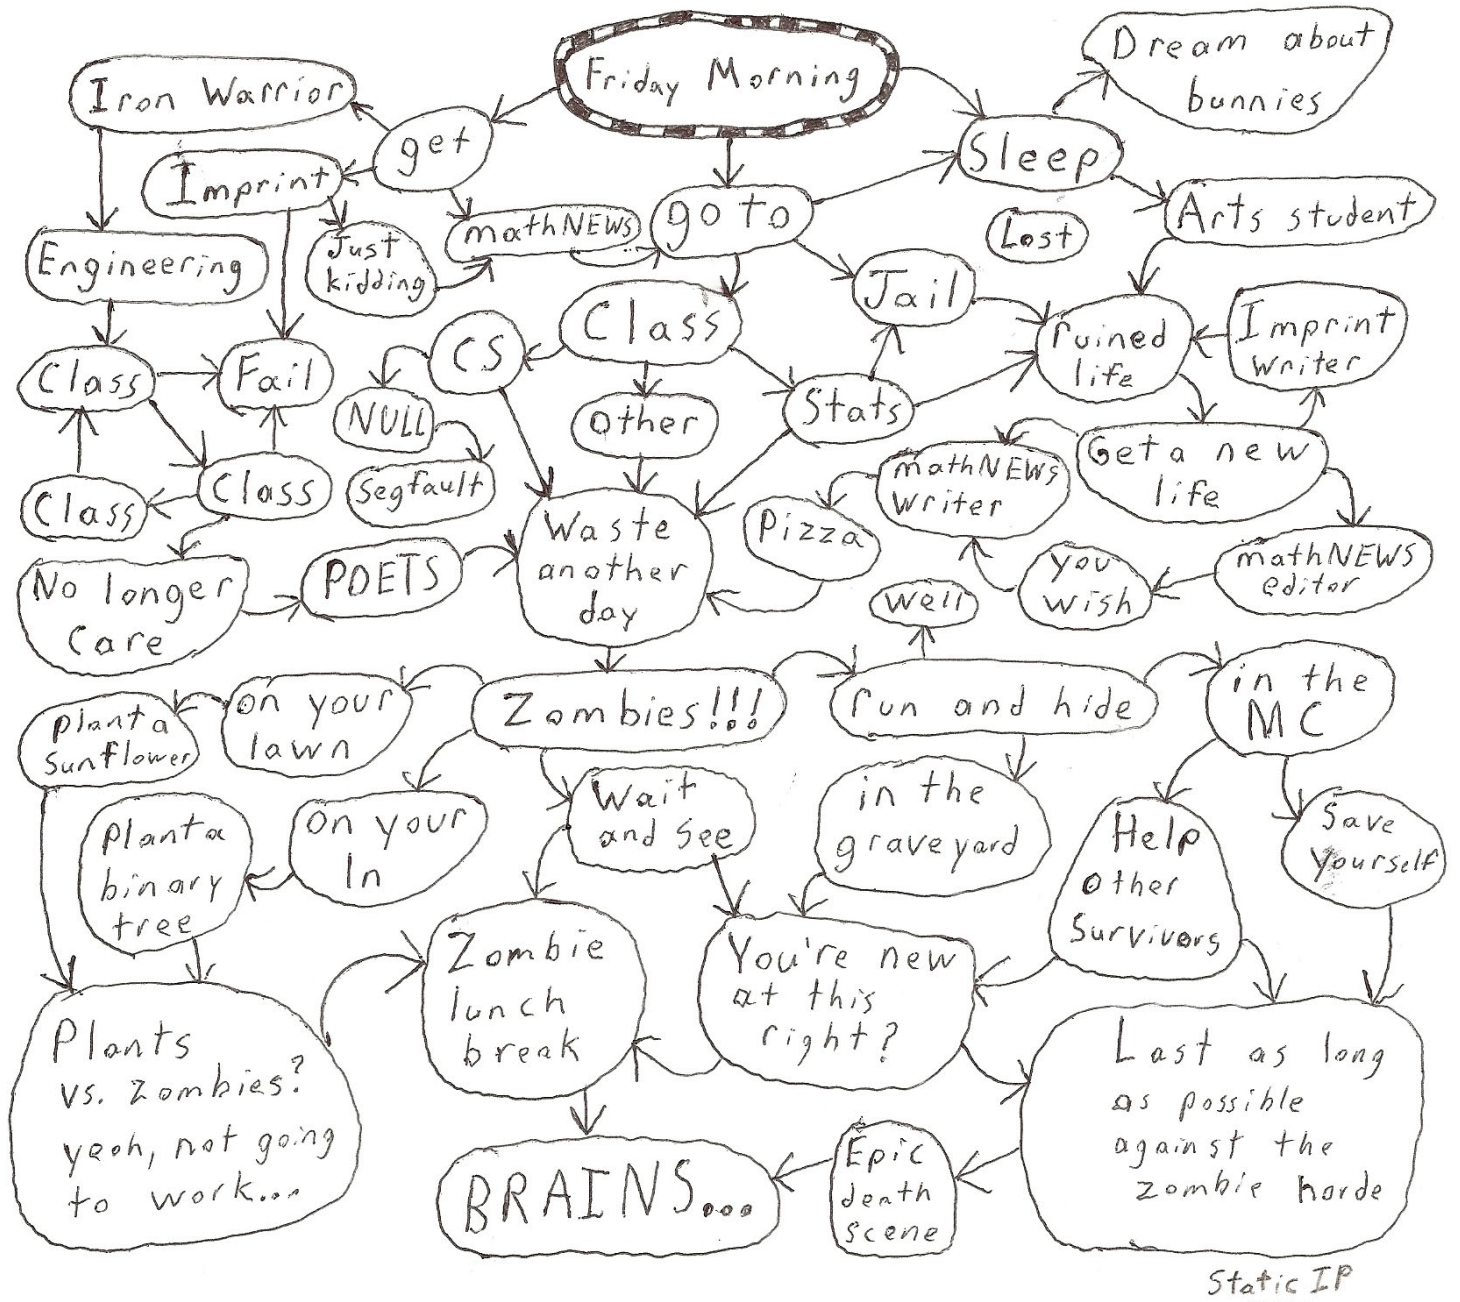 Friday Morning
Dream about
bunnies
Iron Warrior
get
Sleep
Imprint
go to
Arts student
mathNEWS
Lost
Engineering
Just
kidding
Jail
Class
CS
ruined
life
Imprint
writer
Class
Fail
NULL
Other
Stats
Get a new
life
mathNEWS
writer
Class
Class
Segfault
Waste
another
day
Pizza
you
wish
mathNEWS
editor
No longer
Care
POETS
Well
Zombies!!!
run and hide
in the
MC
on your
lawn
plant a
sunflower
Wait
and see
in the
graveyard
Help
other
survivors
Save
yourself
on your
ln
plant a
binary
tree
Zombie
lunch
break
You're new
at this
right?
Plants
vs. Zombies?
yeah, not going
to work...
Last as long
as possible
against the
zombie horde
BRAINS...
Epic
death
scene
Static IP